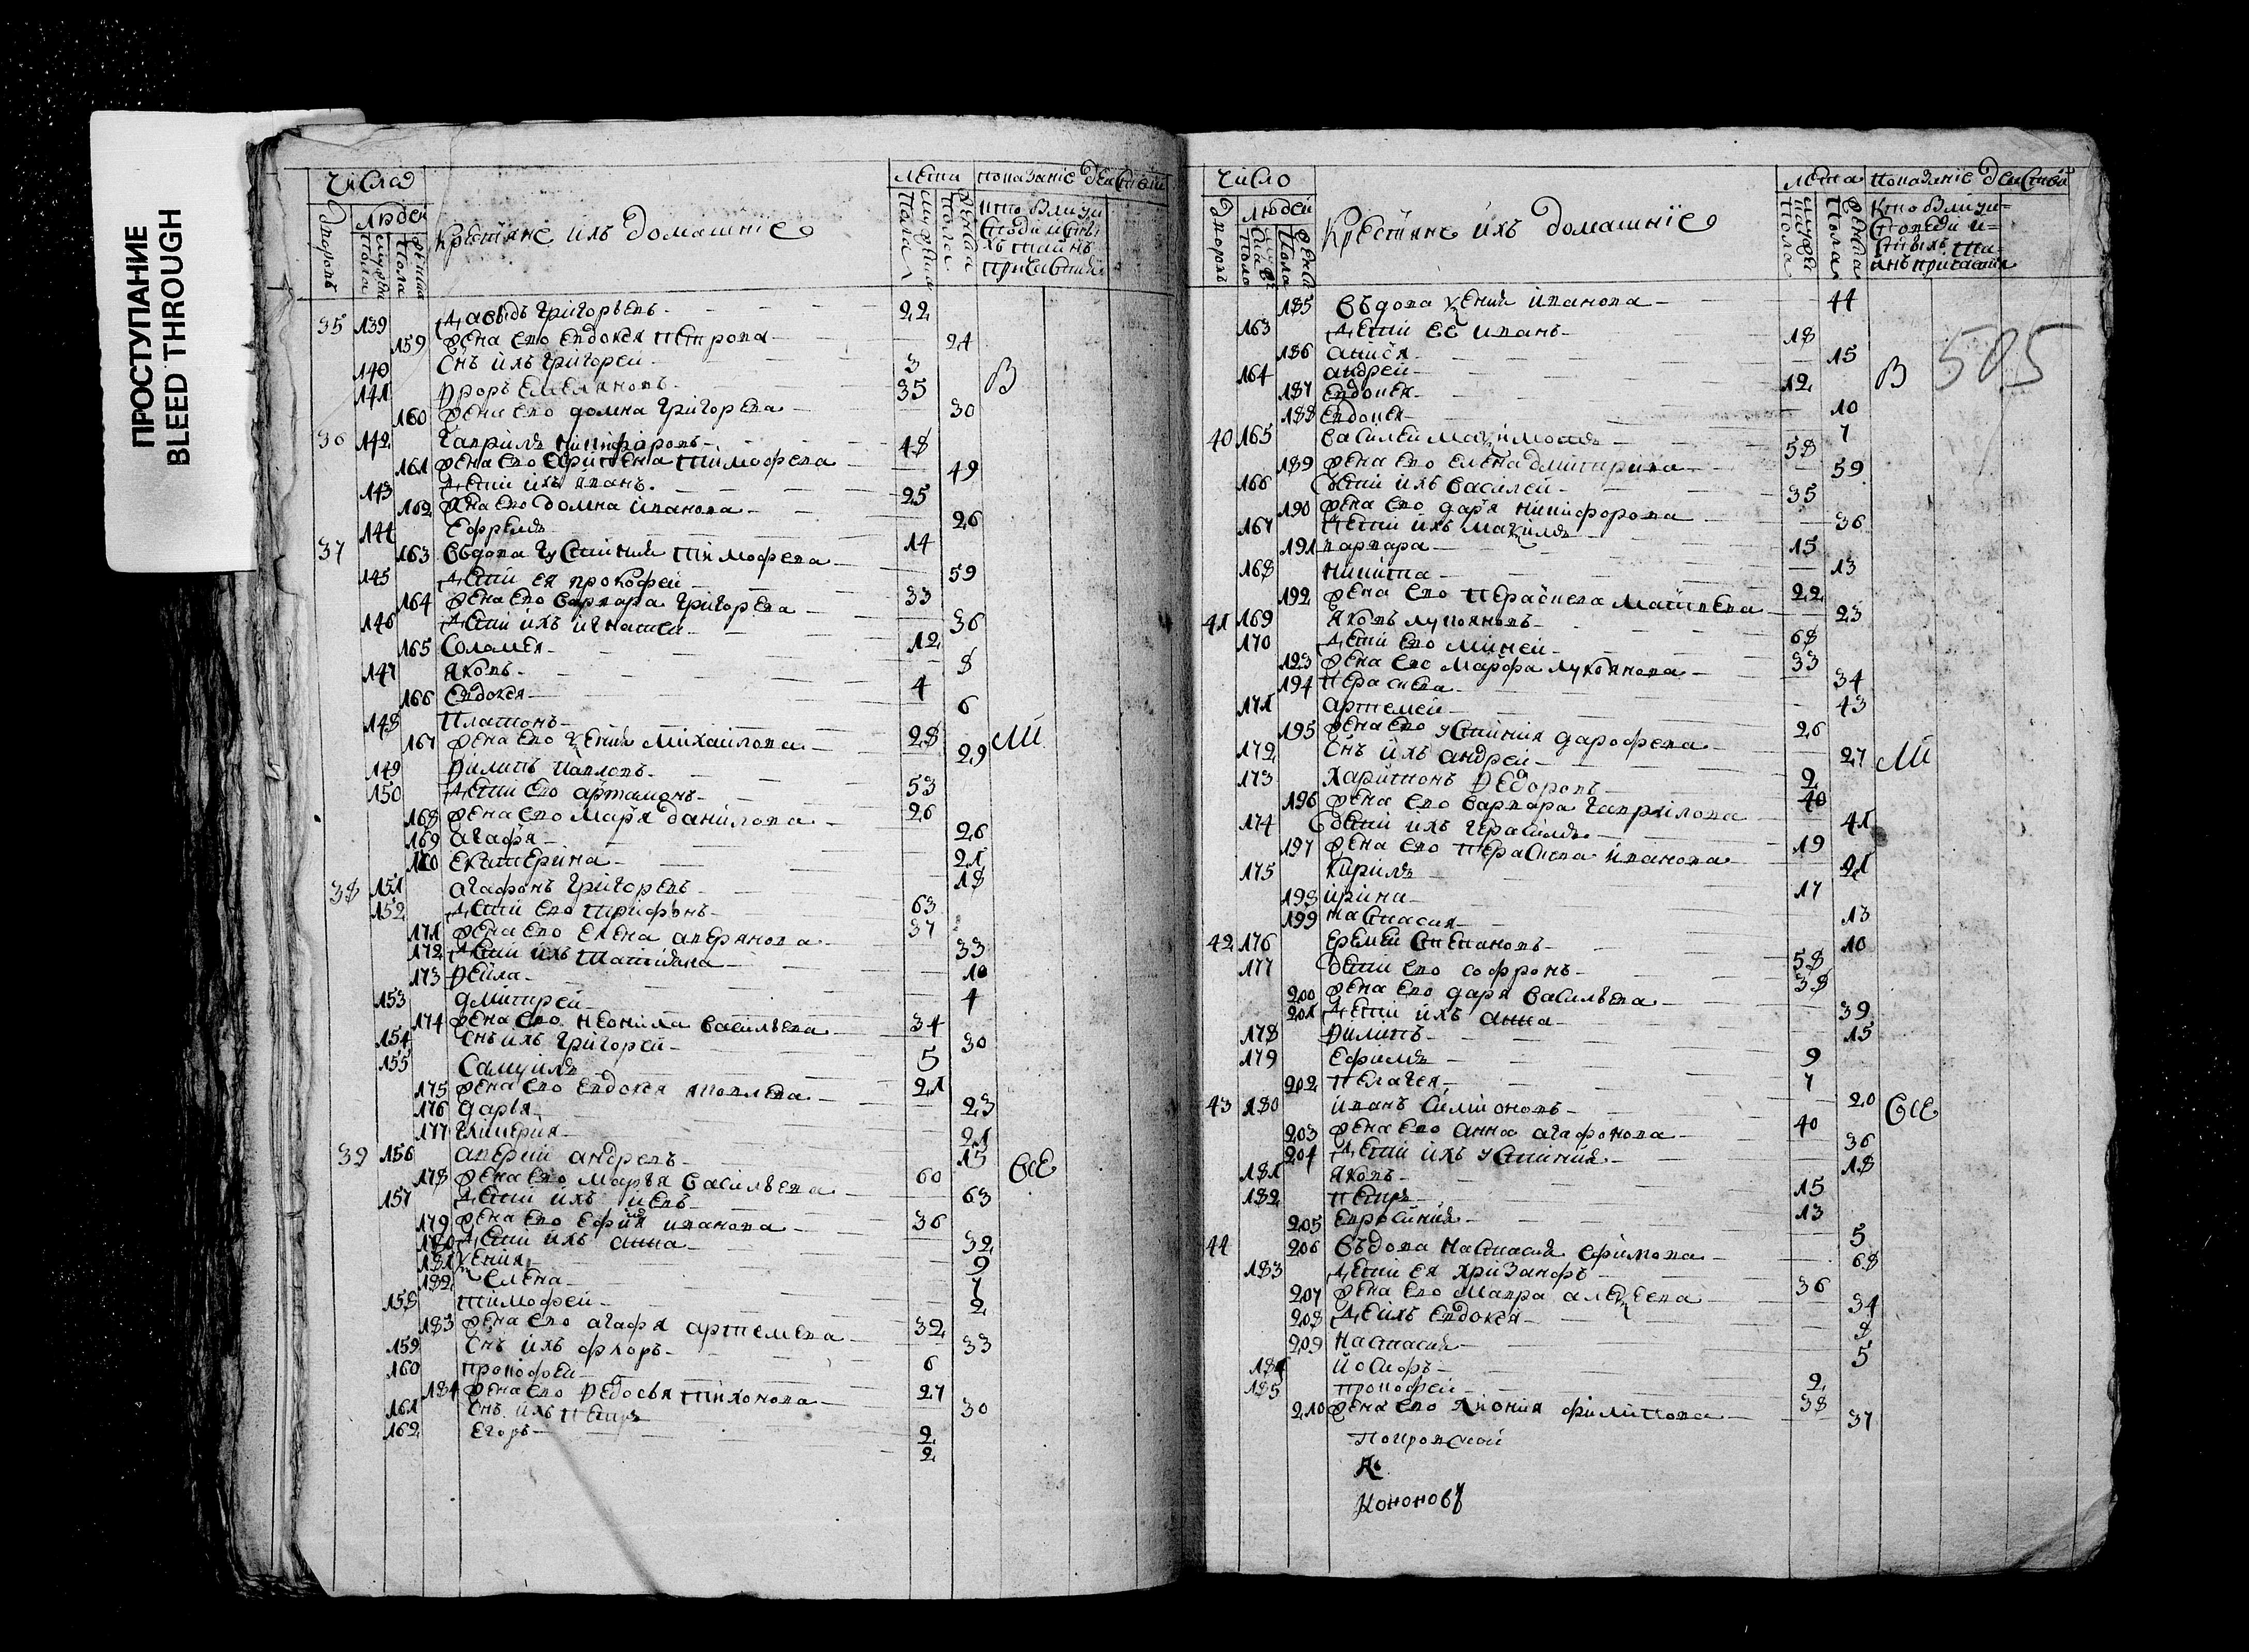 ПРОСТУПАНИЕ
BLEED THROUGH
Числа
Дворовъ
людей
мужеска пола
женска пола
Крестьяне ихъ домашние
лета
мужеска пола
женска пола
показание действа
кто были у исповеди и святыхъ таинъ причастия
35 139 Давыдъ Григорьевъ 22
159 жена ево Евдокея Петрова 24
140 снъ ихъ Григорей 3
141 Ѳроръ Емельяновъ 35 В
160 жена ево Домна Григорева 30
36 142 Гаврилъ Никифоровъ 48
161 жена ево Тимофеева 49
143 дети ихъ Иванъ 25
162 жена ево Домна Иванова 26
144 Ефремъ 14
37 163 въдова Густиния Тимофева 59
145 дети ея Прокофей 33
164 жена ево Варвара Григорева 36
146 дети ихъ Игнатей 12
165 Соломея 8
147 Яковъ 4
166 Евдокея 6
148 Платонъ 28
167 жена ево Ѯения Михайлова 29 ли
149 Ѳилипъ Павловъ 53
150 дети ево Артамонъ 26
168 жена ево Марья Данилова 26
169 Агафья 21
170 Екатерина 18
38 151 Агафонъ Григоревъ 63
152 дети ево Трифонъ 37
171 жена ево Елена Аверянова 33
172 дети ихъ Татияна 10
173 Ѳекла 4
153 Дмитрей 34
174 жена ево Неонила Васильева 30
154 снъ ихъ Григорей 5
155 Самуилъ 21
175 жена ево Евдокея Яковлева 23
176 Дарья 21
177 Гликерия 15
39 156 Аверий Андревъ 60 все
178 жена ево Марья Васильева 63
157 дети ихъ 36
179 жена ево Ефимия Иванова 32
180 дети ихъ Анна 9
181 Ѯения 7
182 Елена 2
158 Тимофей 32
183 жена ево Агафья Артемева 33
159 снъ ихъ Флоръ 6
160 Прокофей 27
184 жена ево Ѳедосья Тихонова 30
161 снъ ихъ Петръ 2
162 Егоръ 2
Число
Дворовъ
людей
мужеска пола
женска пола
Крестьяне ихъ домашние
лета
мужеска пола
женска пола
показание действа
кто были у исповеди и святыхъ таинъ причастия
505
185 въдова Ѯения Иванова 44
163 дети ее Иванъ 18
186 Анисья 15
164 Андрей 12 В
187 Евдокея 10
188 Евдокея 7
40 165 Василей Маѯимовъ 58
189 жена ево Елена Дмитрива 59
166 дети ихъ Василей 35
190 жена ево Дарья Никифорова 36
167 дети ихъ Маѯимъ 15
191 Варвара 13
168 Никита 22
192 жена ево Перасковя Матвева 23
41 169 Яковъ Лукояновъ 68
170 дети ево Миней 33
193 жена ево Марфа Лукоянова 34
194 Перасковя 43
171 Артемей 26
195 жена ево Устиния Дарофева 27 ли
172 снъ ихъ Андрей 2
173 Харитонъ Ѳедоровъ 40
196 жена ево Варвара Гаврилова 41
174 дети ихъ Герасимъ 19
197 жена ево Перасковя Иванова 21
175 Кирилъ 17
198 Ирина 13
199 Настасия 10
42 176 Еремей Степановъ 58
177 дети ево Софронъ 38
200 жена ево Дарья Васильева 39
201 дети ихъ Анна 15
178 Ѳилипъ 9
179 Ефимъ 7
202 Пелагея 20
43 180 Иванъ Симионовъ 40 все
203 жена ево Анна Агафонова 36
204 дети ихъ Устиния 18
181 Яковъ 15
182 Петръ 13
205 Евросиния 5
44 206 въдова Настасия Ефимова 68
183 дети ея Хризанфъ 36
207 жена ево Мавра Алеѯеева 34
208 де ихъ Евдокея 8
209 Настасия 5
184 Иосифъ 2
185 Прокофей 38
210 жена ево Хиония Филипова 37
Покровской
Кононовъ